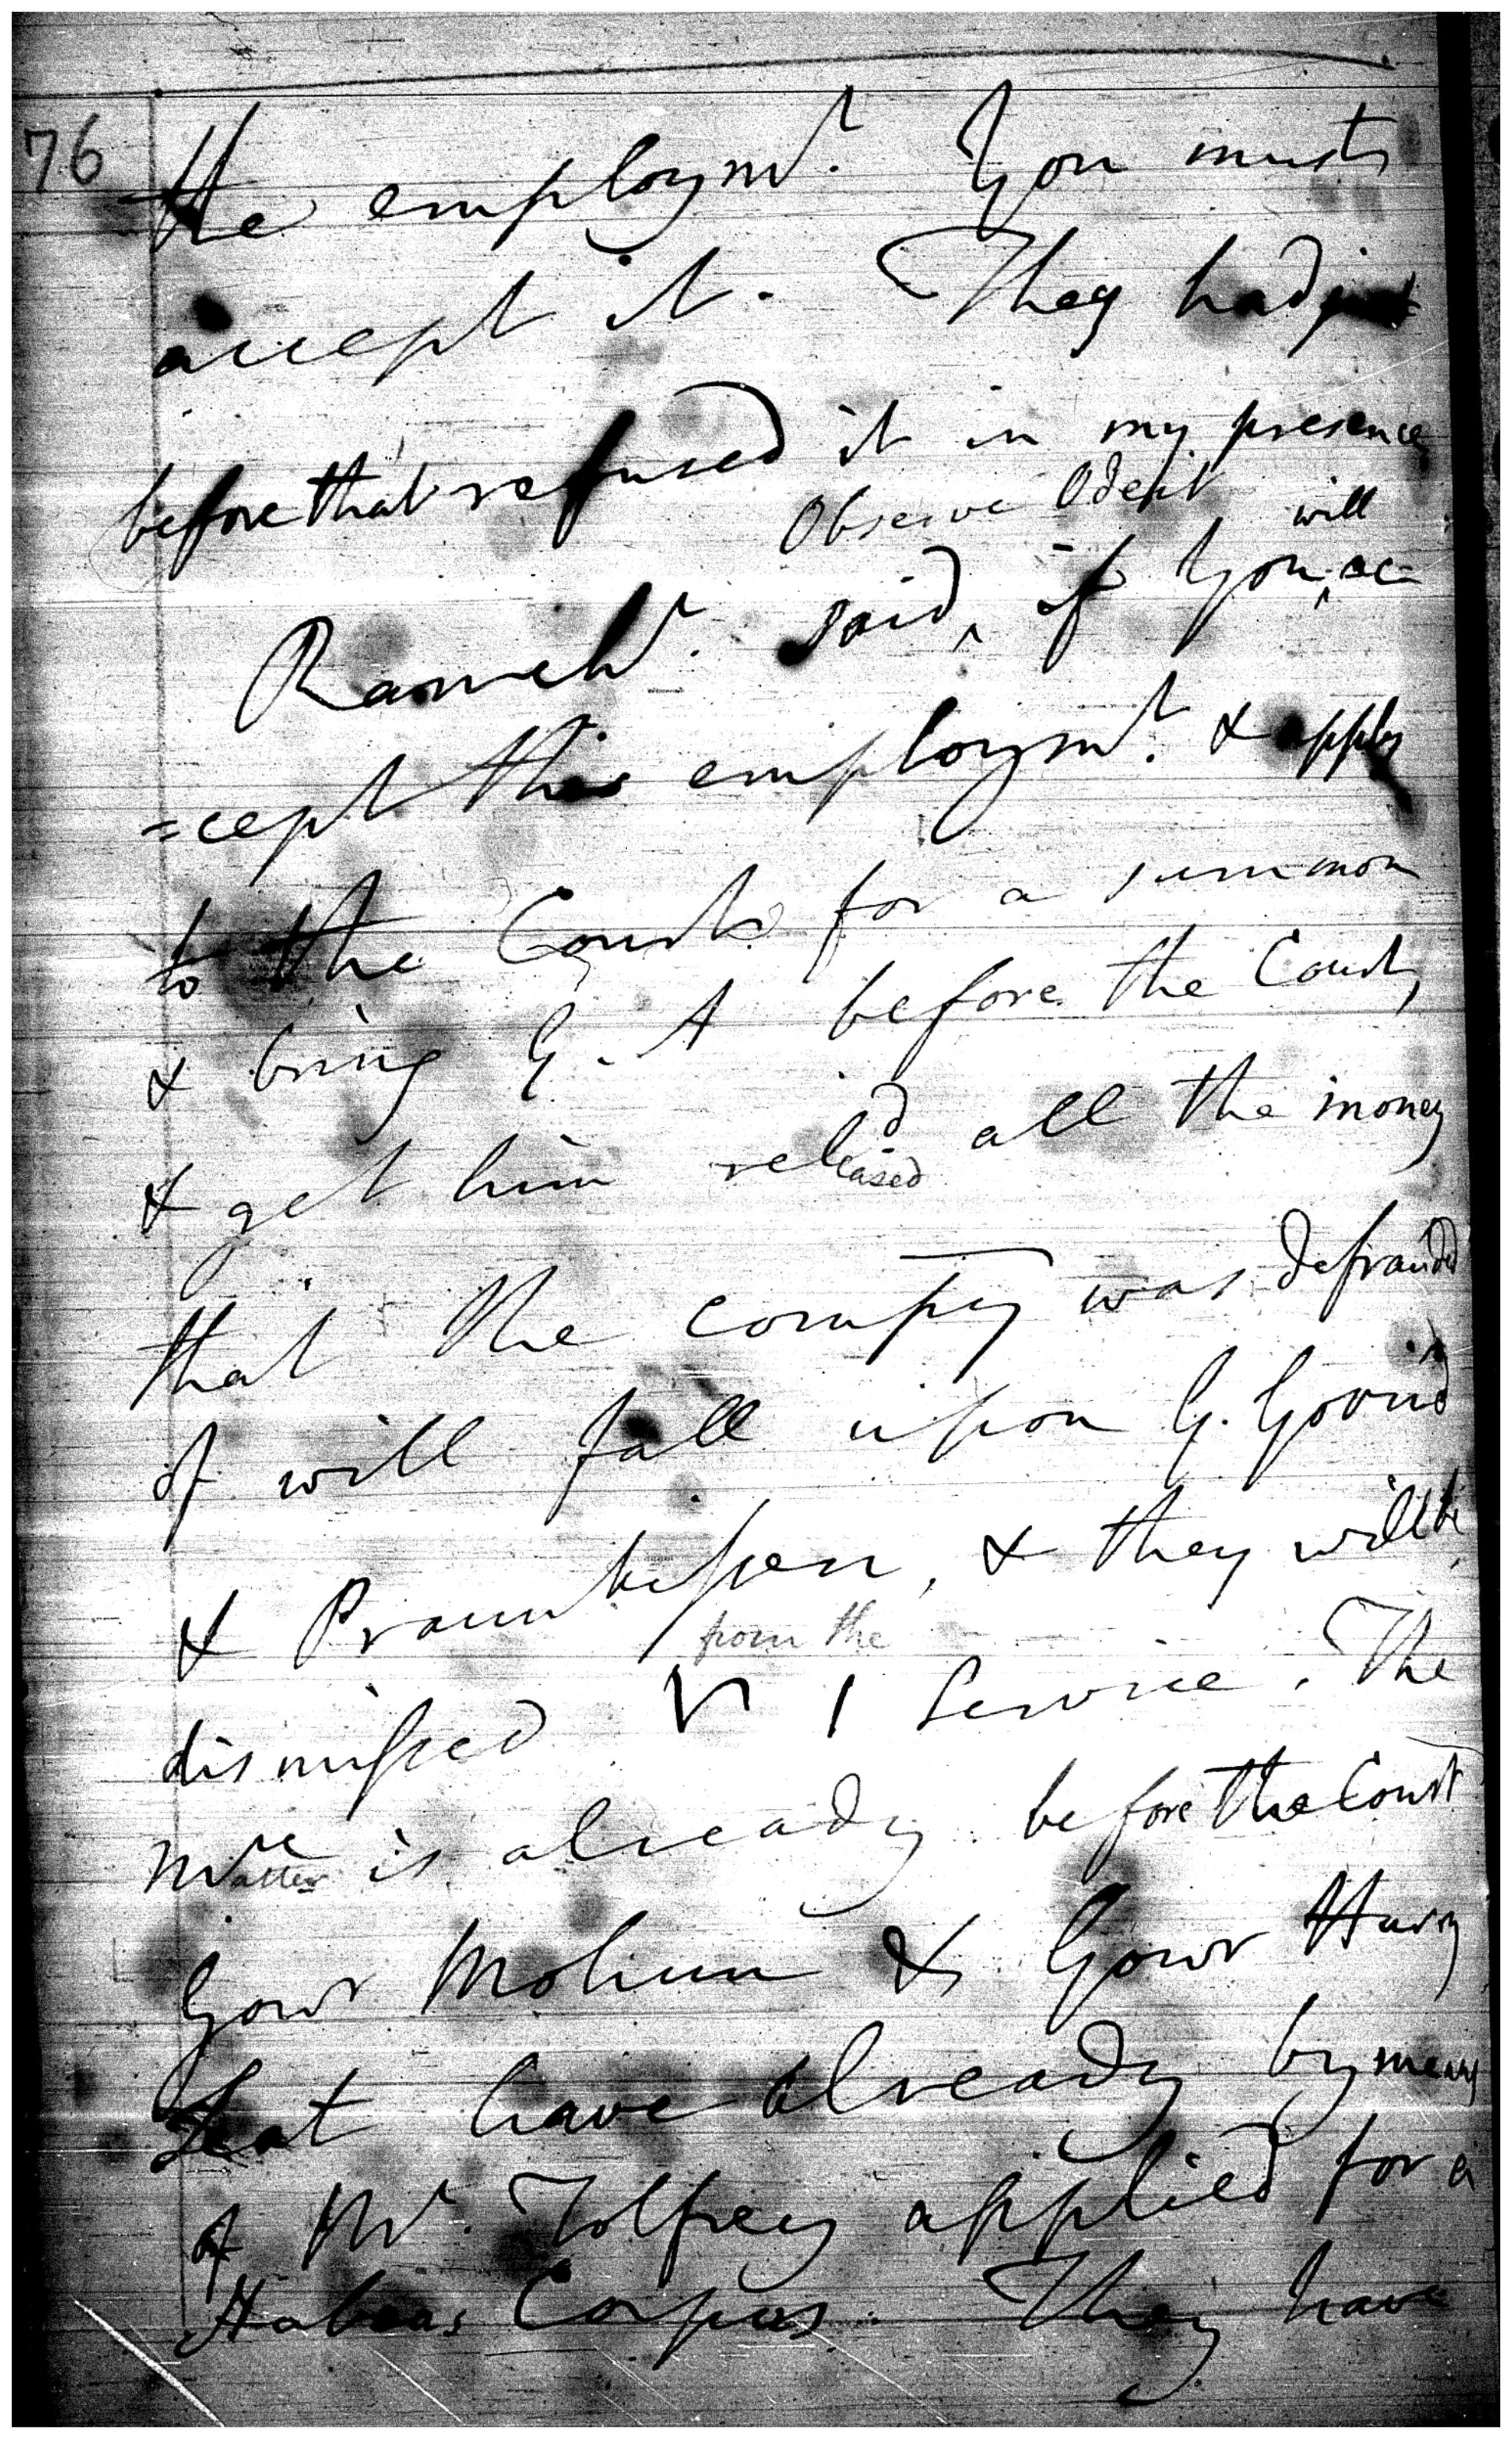 76
the employmt. You must
accept it. They had just
before that refused it in my presence
Observe Odent will
Ramcht. said, if You ac-
=cept this employmt. & apply
to the Court for a summon
& bring G. A before the Court,
& get him reld all the money
eased
that the compy was defrauded
of will fall upon G. Govind
& Praunkissen, & they will be
from the
dismissed Service. The
Mre is already before the Court
atter
Gour Mohun & Gour Hurry
have already by means
of Mr. Tolfrey applied for a
Habeas Corpus. They have